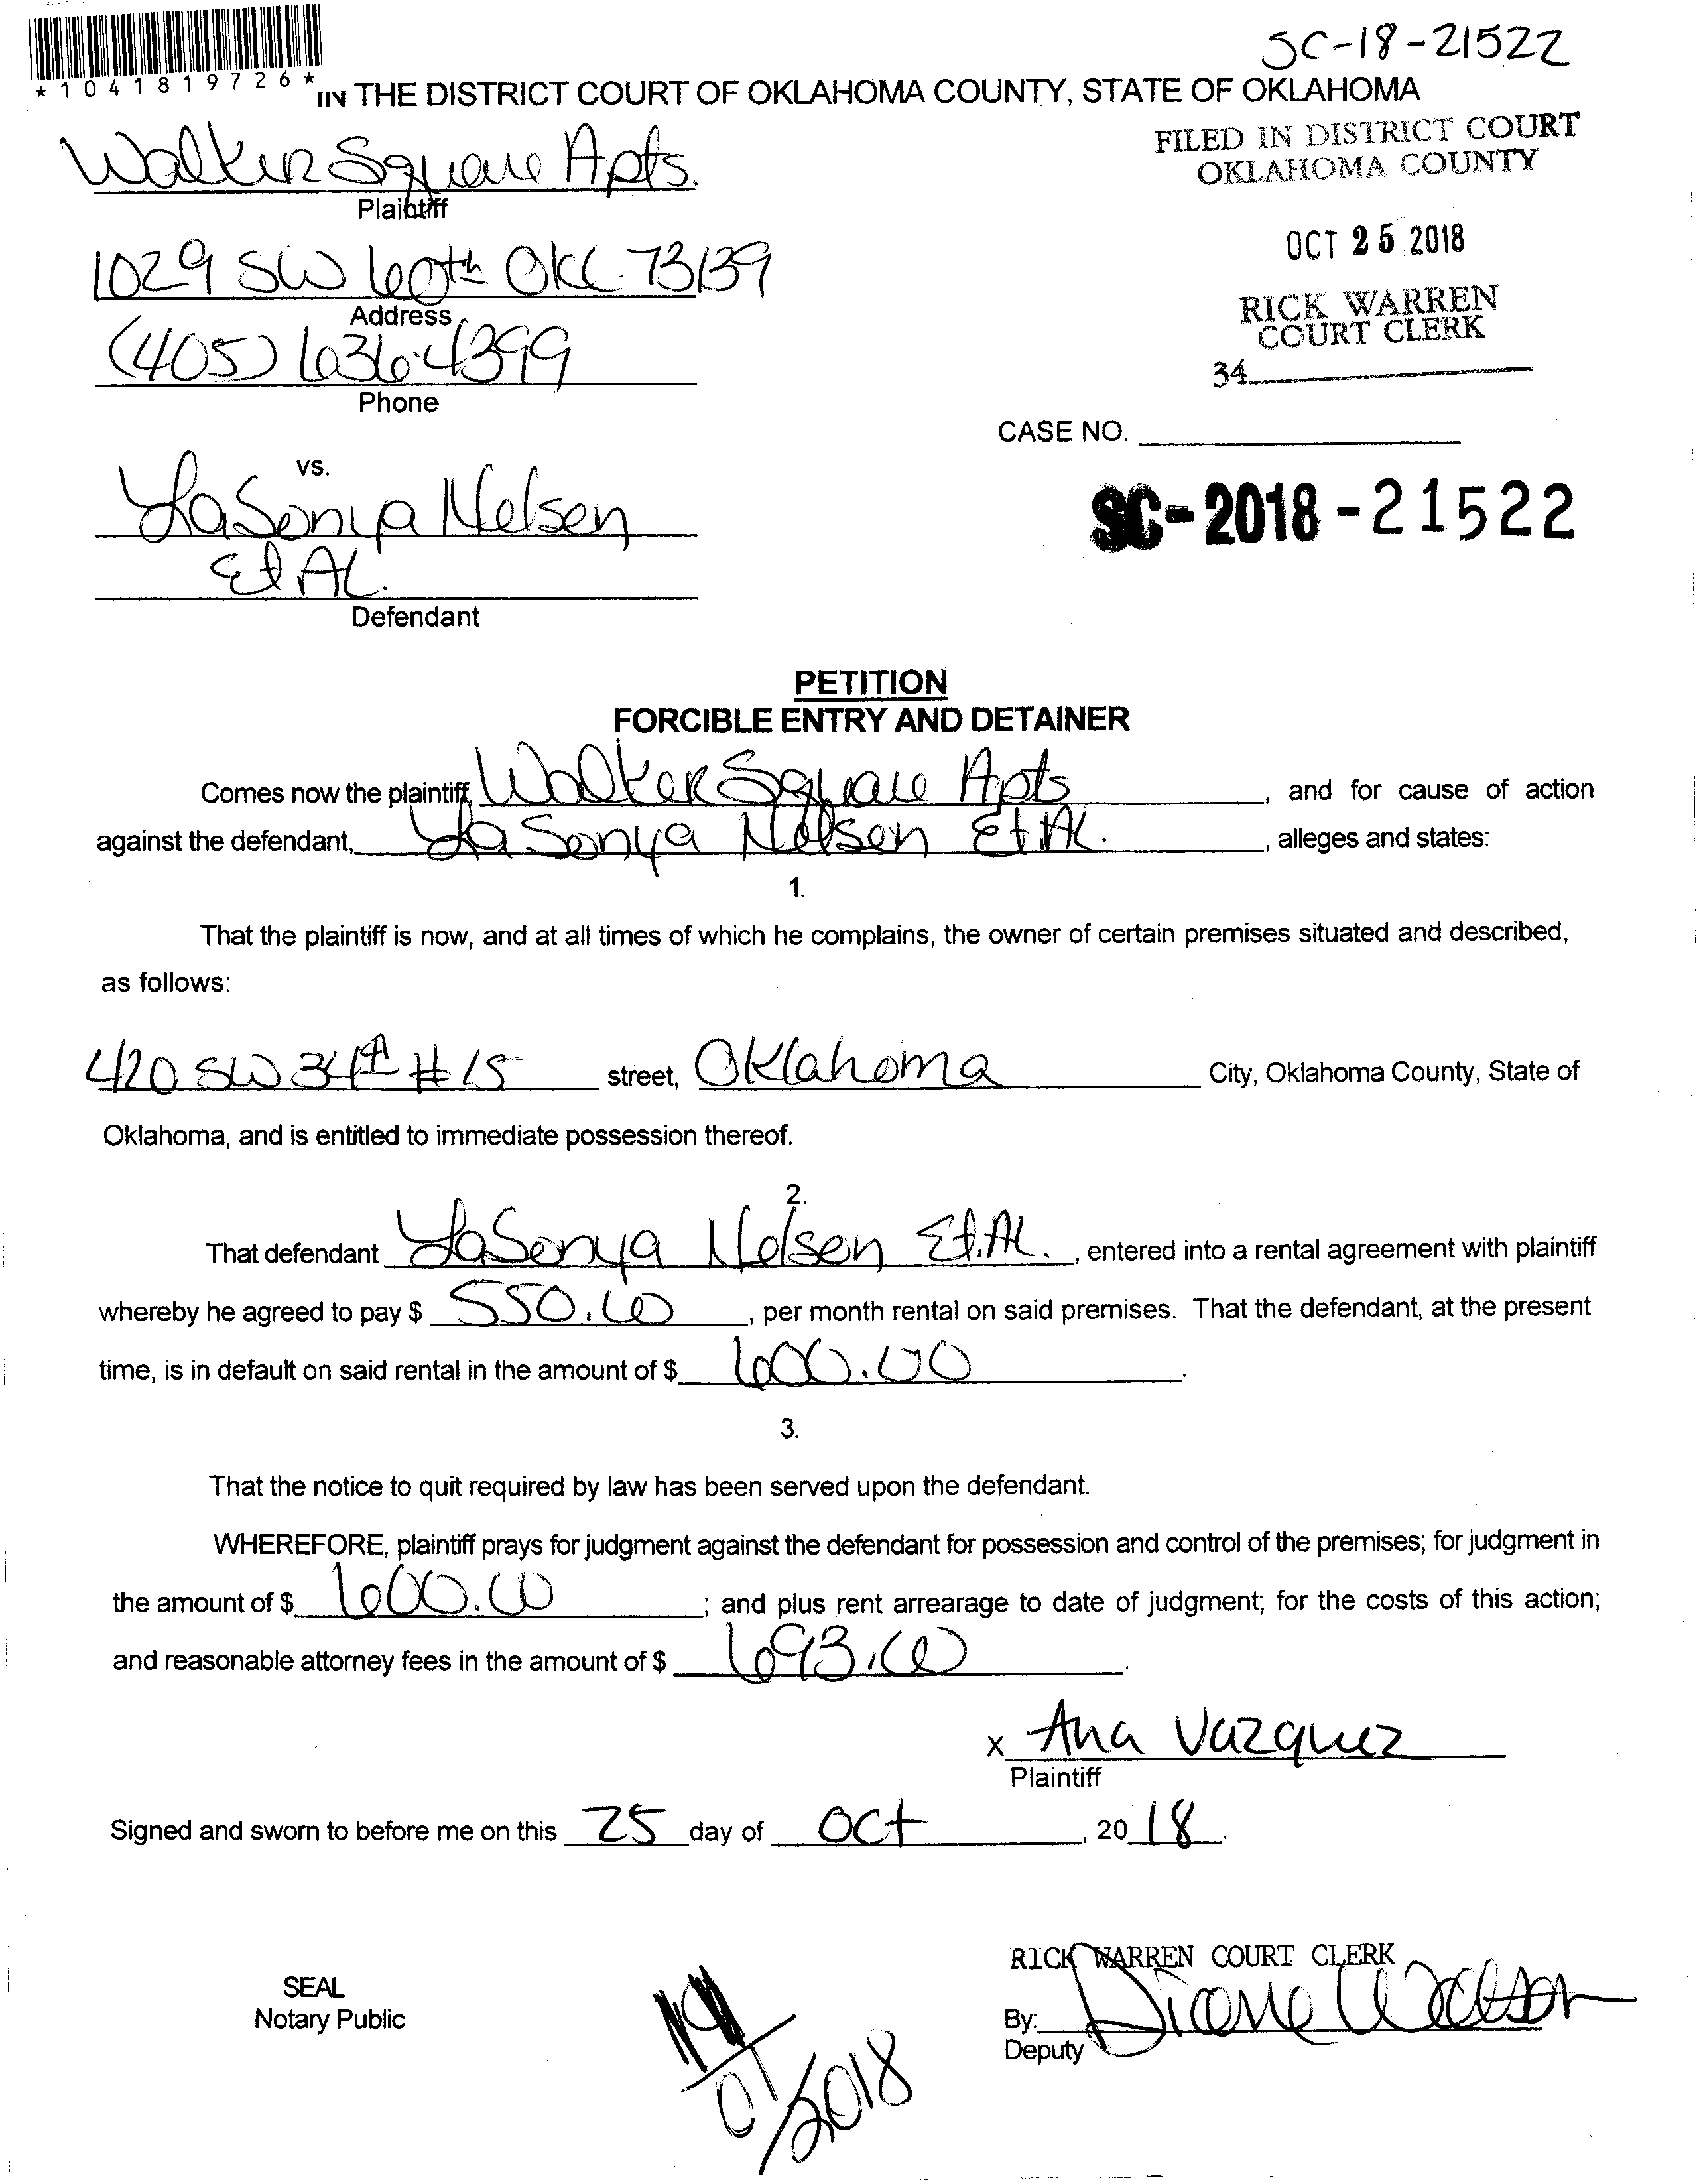 SC-18-21522
*1041819726*
IN THE DISTRICT COURT OF OKLAHOMA COUNTY, STATE OF OKLAHOMA
FILED IN DISTRICT COURT
OKLAHOMA COUNTY
Walker Square Apts.
Plaintiff
OCT 25 2018
1029 SW 60th OKC. 73139
Address
RICK WARREN
COURT CLERK
(405) 636-4399
34
Phone
CASE NO.
vs.
LaSonya Nelsen
SC-2018-21522
Et Al.
Defendant
PETITION
FORCIBLE ENTRY AND DETAINER
Comes now the plaintiff, Walker Square Apts, and for cause of action
against the defendant, LaSonya Nelsen Et Al., alleges and states:
1.
That the plaintiff is now, and at all times of which he complains, the owner of certain premises situated and described,
as follows:
420 SW 34th #15 street, Oklahoma City, Oklahoma County, State of
Oklahoma, and is entitled to immediate possession thereof.
2.
That defendant LaSonya Nelsen Et. Al., entered into a rental agreement with plaintiff
whereby he agreed to pay $ 550.00, per month rental on said premises. That the defendant, at the present
time, is in default on said rental in the amount of $ 600.00.
3.
That the notice to quit required by law has been served upon the defendant.
WHEREFORE, plaintiff prays for judgment against the defendant for possession and control of the premises; for judgment in
the amount of $ 600.00; and plus rent arrearage to date of judgment; for the costs of this action;
and reasonable attorney fees in the amount of $ 693.00.
x Ana Vazquez
Plaintiff
Signed and sworn to before me on this 25 day of Oct, 2018.
RICK WARREN COURT CLERK
SEAL
Notary Public
By: Diane Watson
Deputy
01/2018